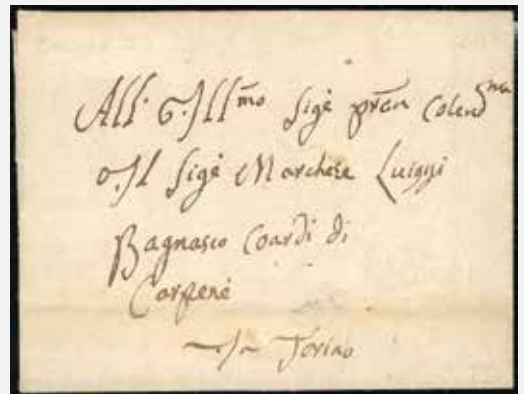 All' Ill^mo Sig^e pron Colend^mo
Il Sig^e Marchese Luiggi
Bagnasco Coardi di
Carpenè
Torino